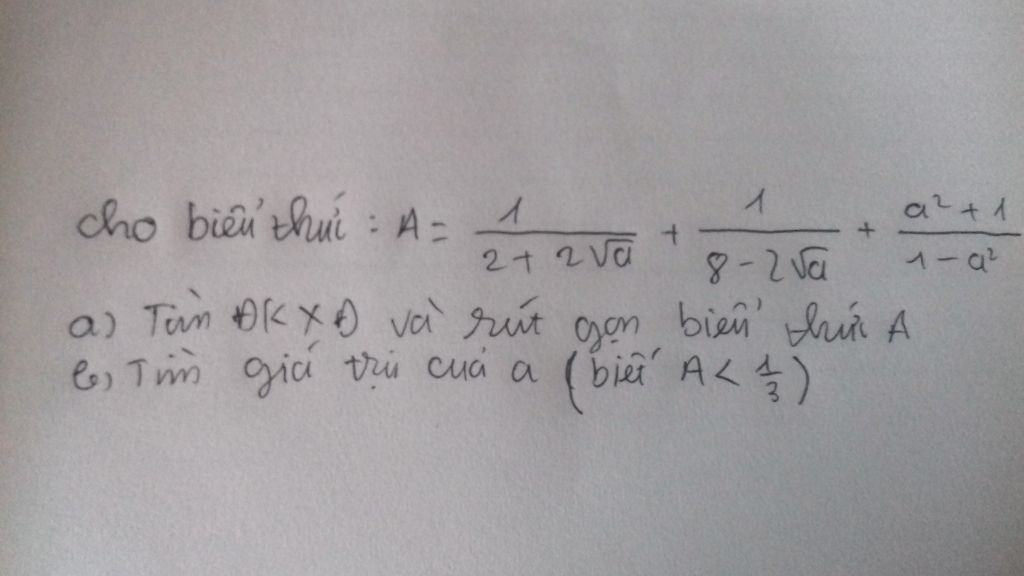 cho biểu thức : A = 1/(2 + 2√a) + 1/(8 - 2√a) + (a² + 1)/(1 - a²)
a) Tìm ĐKXĐ và rút gọn biểu thức A
b, Tìm giá trị của a (biết A < 1/3)